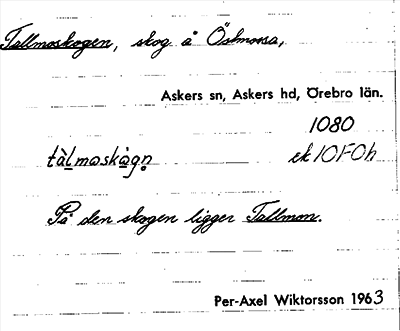 Tallmoskogen, skog å Östmossa,
Askers sn, Askers hd, Örebro län.
1080
tàlmoskògn̥ ek 10F0h
På den skogen ligger Tallmon.
Per-Axel Wiktorsson 1963